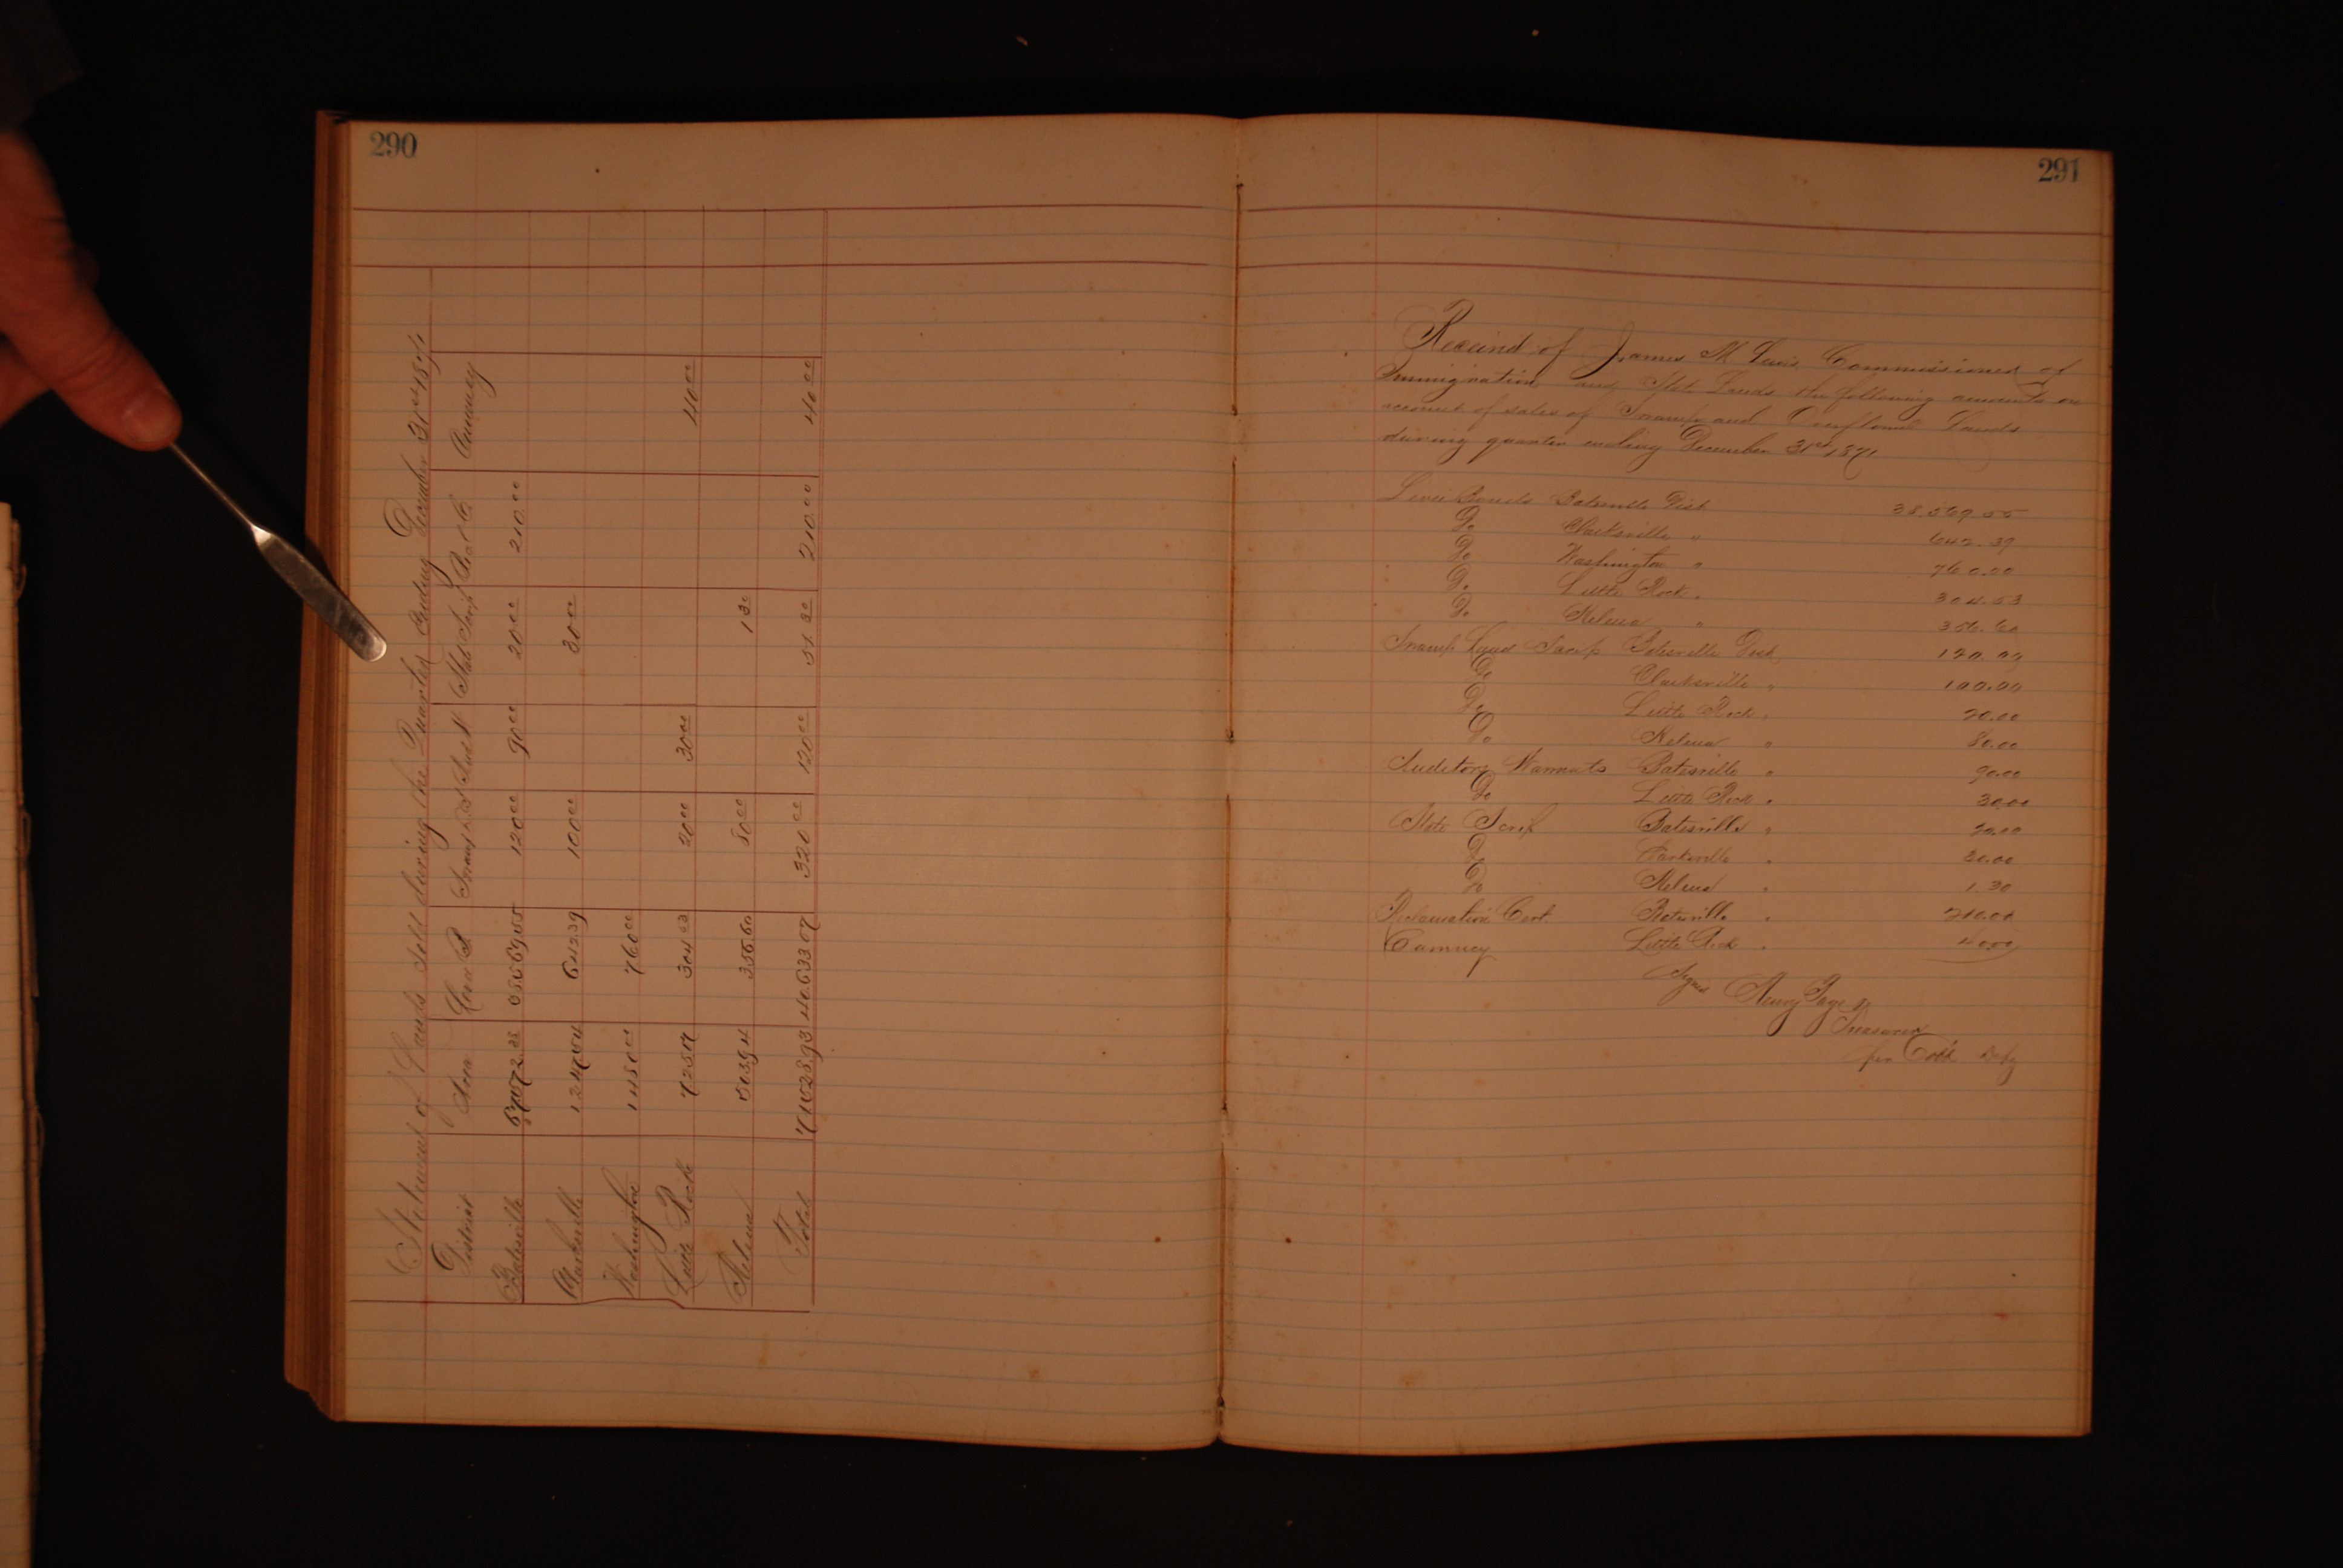 290
Statement of Lands Sold during the Quarter Ending December 31st 1871
District Acres Levee B Swamp L S Aud W State Scrip Rec C Currency
Batesville 120.00 90.00 20.00 210.00
Clarksville 642.39 100.00 30.00
Washington 760.00
Little Rock 304.53 20.00 30.00 40.00
Helena 356.60 80.00 1.30
Total 40.633.07 320.00 120.00 51.30 210.00 40.00
291
Received of James M Lewis Commissioner of
Immigration and State Lands the following amounts on
account of sales of Swamp and Overflowed Lands
during quarter ending December 31st 1871
Levee Bonds Batesville Dist 38.569.55
Do Clarksville " 642.39
Do Washington " 760.00
Do Little Rock " 304.53
Do Helena " 356.60
Swamp Land Scrip Batesville Dist 120.00
Do Clarksville " 100.00
Do Little Rock " 20.00
Do Helena " 80.00
Auditors Warrants Batesville " 90.00
Do Little Rock " 30.00
State Scrip Batesville " 20.00
Do Clarksville " 30.00
Do Helena " 1.30
Reclamation Cert. Batesville " 210.00
Currency Little Rock " 40.00
Signed Henry Page
Treasurer
per Cobb Dep